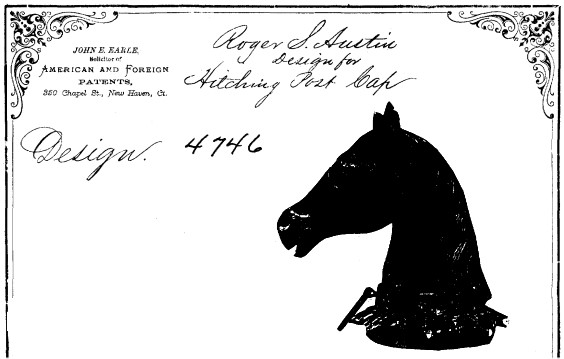 JOHN E. EARLE,
Solicitor of
AMERICAN AND FOREIGN
PATENTS,
350 Chapel St., New Haven, Ct.
Roger S. Austin
Design for
Hitching Post Cap
Design. 4746